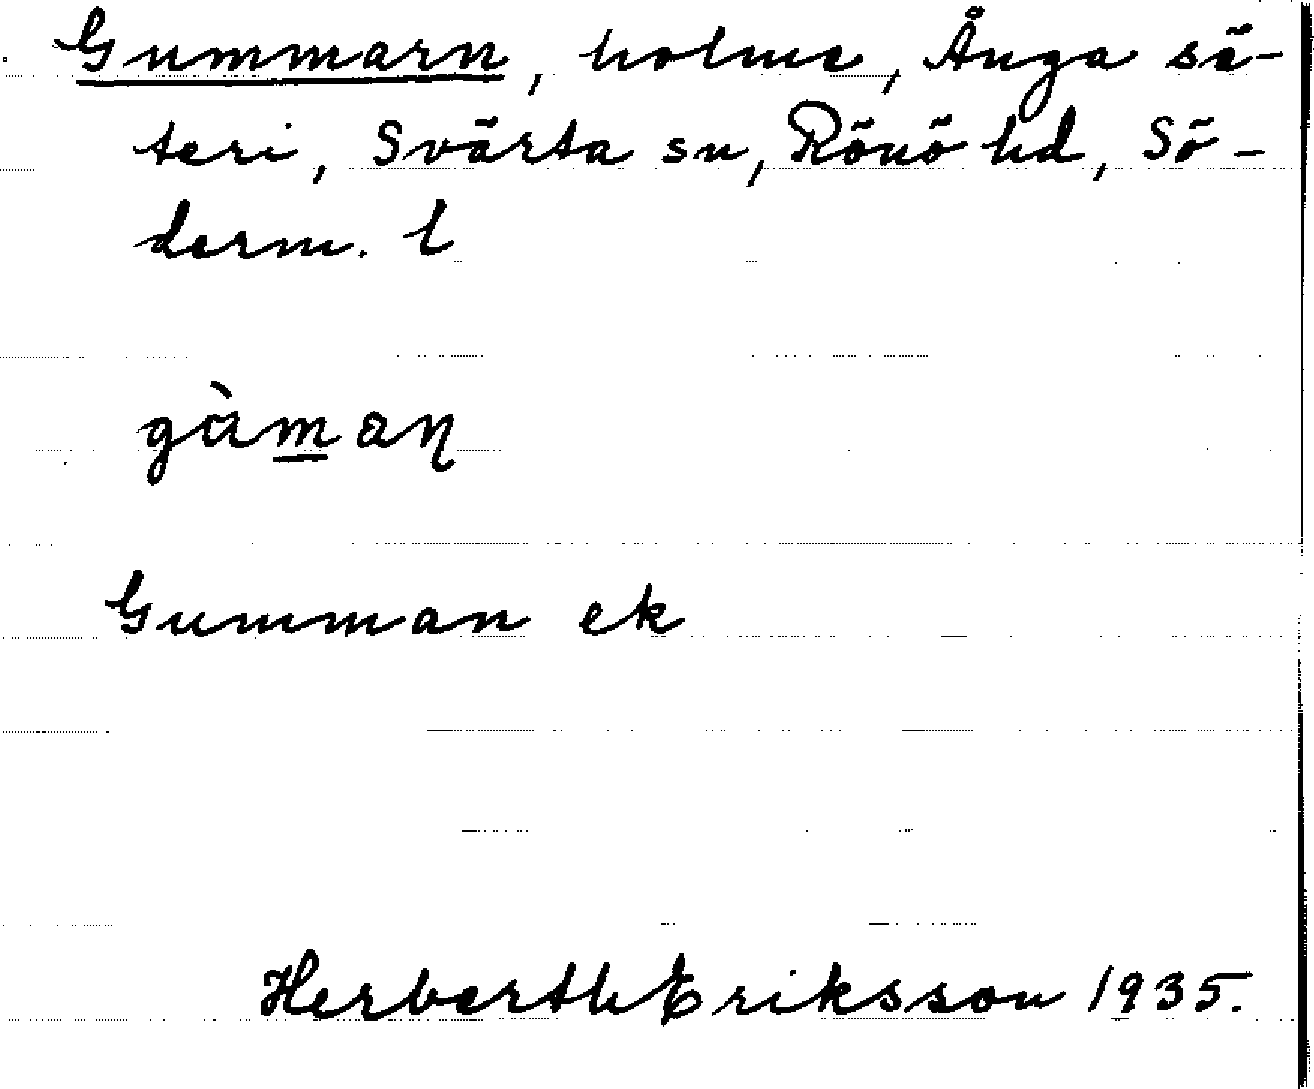 Gummarn, holme, Ånga sä-
teri, Svärta sn, Rönö hd, Sö-
derm. l
gàmaɳ
Gumman ek
Herberth Eriksson 1935.